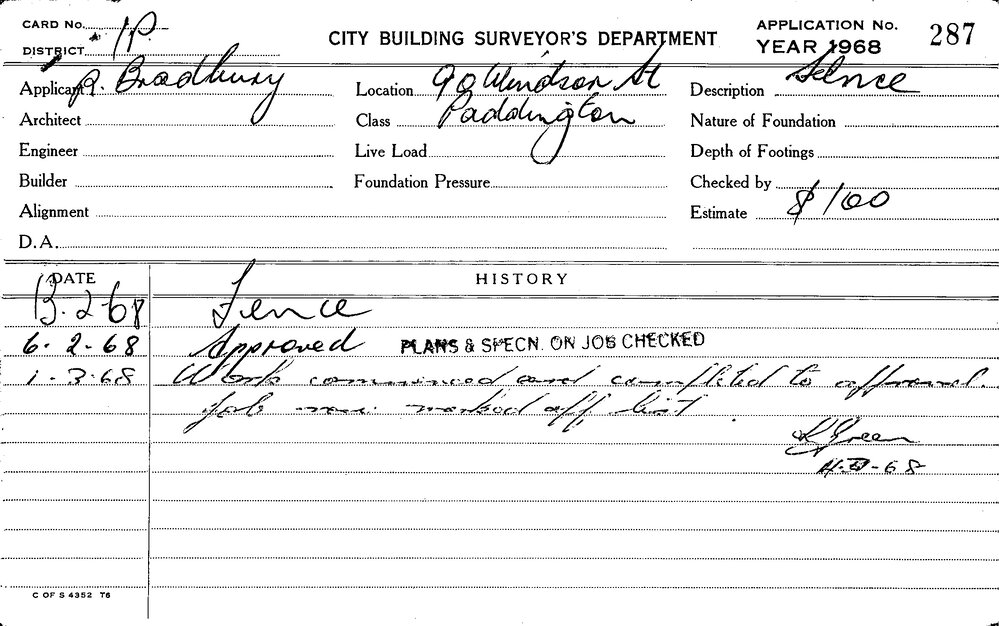 CARD No.
DISTRICT 1P.
CITY BUILDING SURVEYOR'S DEPARTMENT
APPLICATION No. 287
YEAR 1968
Applicant R. Bradbury
Location 90 Windsor St
Description Fence
Architect
Class Paddington
Nature of Foundation
Engineer
Live Load
Depth of Footings
Builder
Foundation Pressure
Checked by
Alignment
Estimate $100
D.A.
DATE HISTORY
13.2.68 Fence
6.2.68 Approved PLANS & SPECN. ON JOB CHECKED
1.3.68 Work commenced and completed to approval.
Job now marked off list.
K Green
-68
C OF S 4352 T6